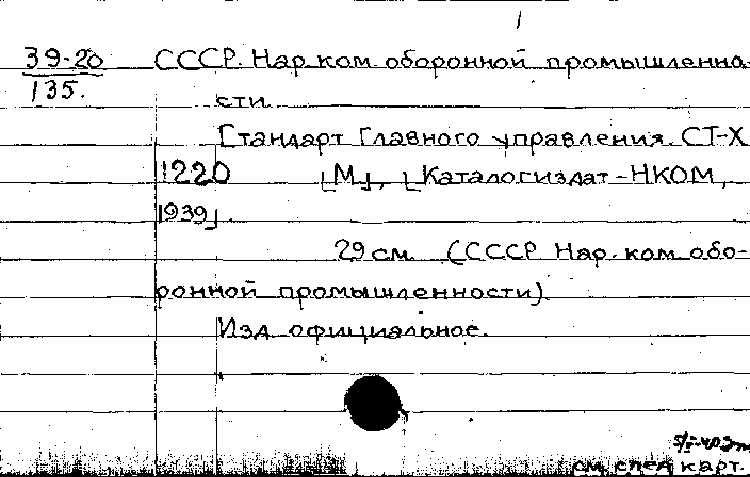 39-20
135.
СССР. Нар. ком. оборонной промышленно
сти.
Стандарт Главного управления. СТ-Х
1220 [М.], [Каталогиздат-НКОМ,
1939].
29 см. (СССР. Нар. ком. обо-
ронной промышленности).
Изд. официальное.
см. спец. карт.